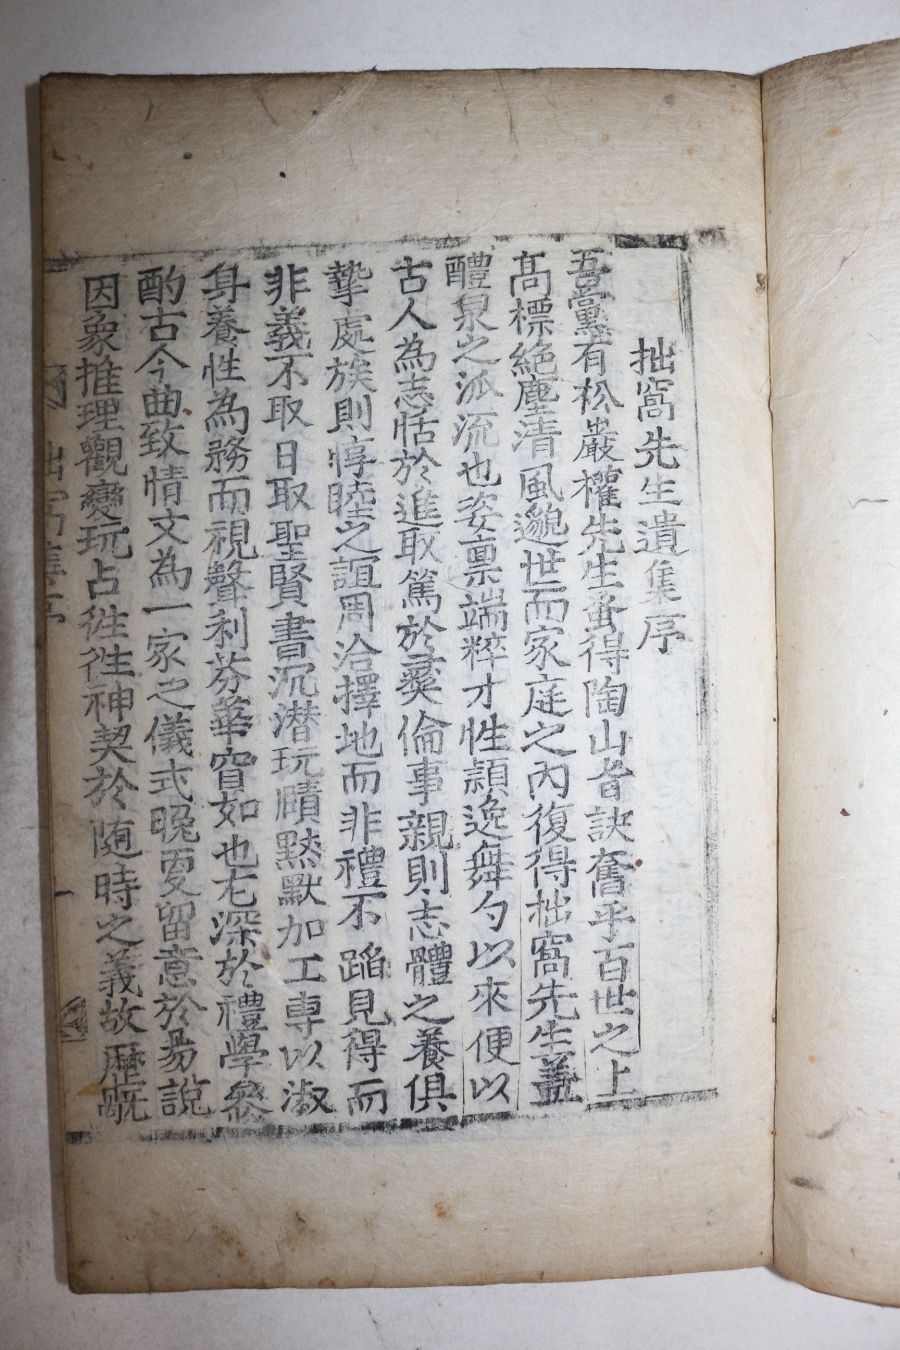 拙窩先生遺集序
吾黨有松巖權先生蚤得陶山旨訣奮乎百世之上
髙標絶塵清風邈世而家庭之內復得拙窩先生盖
醴泉之派流也姿稟端粹才性穎逸舞勺以來便以
古人為志恬於進取篤於彛倫事親則志體之養俱
摯處族則惇睦之誼周洽擇地而非禮不蹈見得而
非義不取日取聖賢書沉潜玩賾黙默加工専以淑
身養性為務而視聲利芬華窅如也尤深於禮學叅
酌古今曲致情文為一家之儀式晚更留意於易說
因象推理觀變玩占徃徃神契於隨時之義故歷
拙窩集序
一